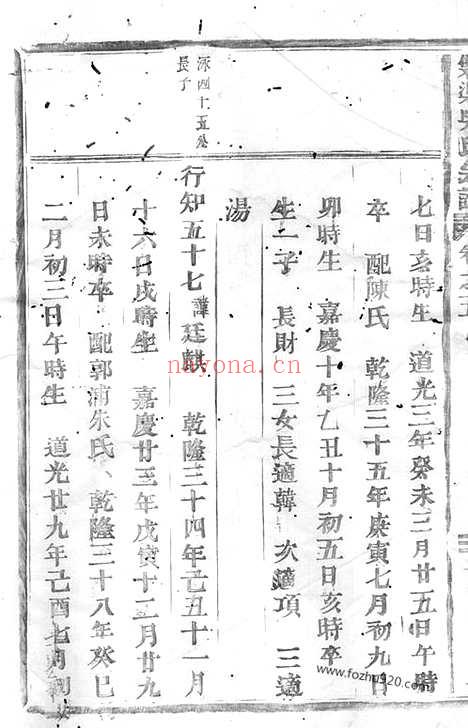 七日亥時生 道光三年癸未三月廿五日午時
卒 配陳氏 乾隆三十五年庚寅七月初九日
卯時生 嘉慶十年乙丑十月初五日亥時卒
生一子 長財 三女長適韓 次適項 三適
湯
涿四十五公
長子
行知五十七 諱廷麒 乾隆三十四年己丑十一月
十六日戌時生 嘉慶廿三年戊寅十二月廿九
日未時卒 配郭浦朱氏 乾隆三十八年癸巳
二月初三日午時生 道光廿九年己酉七月初
nayona.cn
www.fozhu920.com